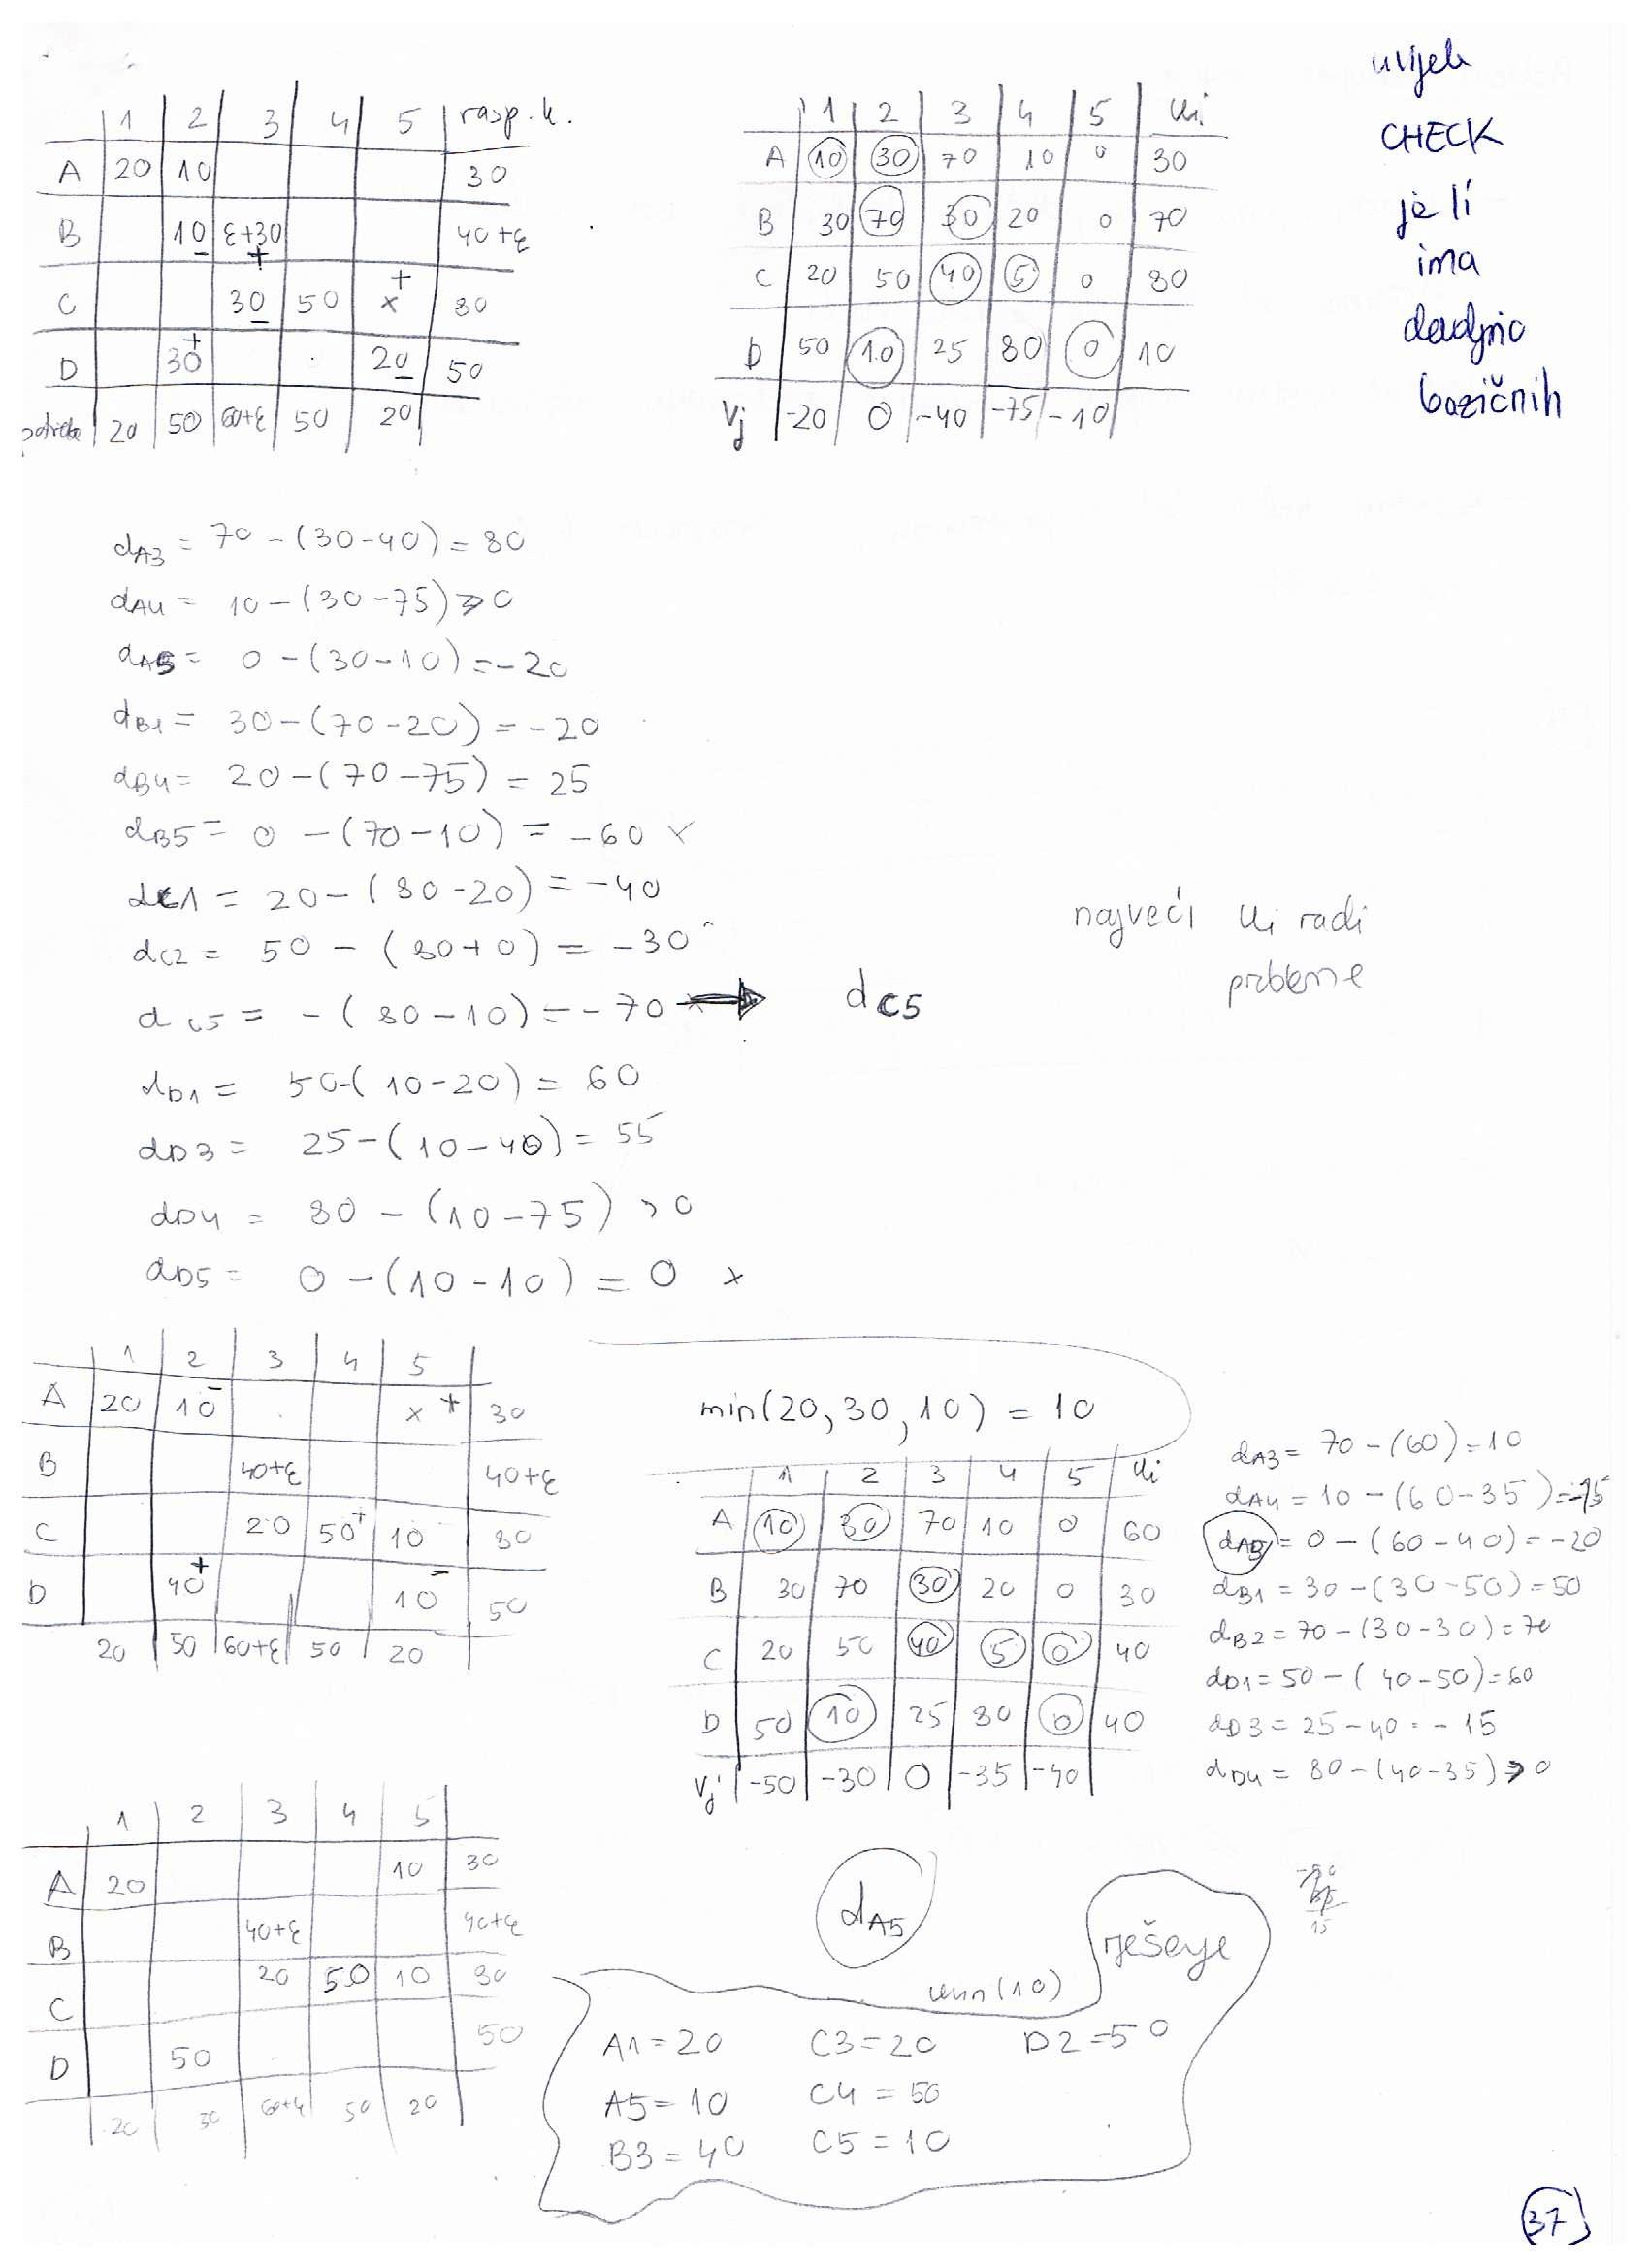 1 2 3 4 5 rasp. k.
A 20 10 30
B 10 ε+30 40+ε
- +
C 30 50 x + 80
-
D 30 + 20 50
-
20 50 60+ε 50 20
1 2 3 4 5 Ui
A 10 30 70 10 0 30
B 30 70 30 20 0 70
C 20 50 40 5 0 80
D 50 10 25 80 0 10
Vj -20 0 -40 -75 -10
uvijek
CHECK
je li
ima
bazičnih
dA3 = 70 - (30-40) = 80
dA4 = 10 - (30-75) > 0
dA5 = 0 - (30-10) = -20
dB1 = 30 - (70-20) = -20
dB4 = 20 - (70-75) = 25
dB5 = 0 - (70-10) = -60 x
dC1 = 20 - (80-20) = -40
dC2 = 50 - (80+0) = -30
dC5 = - (80-10) = -70 x → dC5
dD1 = 50-(10-20) = 60
dD3 = 25-(10-40) = 55
dD4 = 80 - (10-75) > 0
dD5 = 0 - (10-10) = 0 x
najveći Ui radi
probleme
1 2 3 4 5
A 20 10 - x + 30
B 40+ε 40+ε
C 20 50 + 10 80
D 40 + 10 - 50
20 50 60+ε 50 20
min(20, 30, 10) = 10
1 2 3 4 5 Ui
A 10 30 70 10 0 60
B 30 70 30 20 0 30
C 20 50 40 5 0 40
D 50 10 25 80 0 40
Vj -50 -30 0 -35 -40
dA3 = 70 - (60) = 10
dA4 = 10 - (60-35) = -15
dA5 = 0 - (60-40) = -20
dB1 = 30 - (30-50) = 50
dB2 = 70 - (30-30) = 70
dD1 = 50 - (40-50) = 60
dD3 = 25-40 = -15
dD4 = 80 - (40-35) > 0
1 2 3 4 5
A 20 10 30
B 40+ε 40+ε
C 20 50 10 80
D 50 50
20 30 60+ε 50 20
dA5
rješenje
min(10)
A1=20 C3=20 D2=50
A5=10 C4=50
B3=40 C5=10
15
37